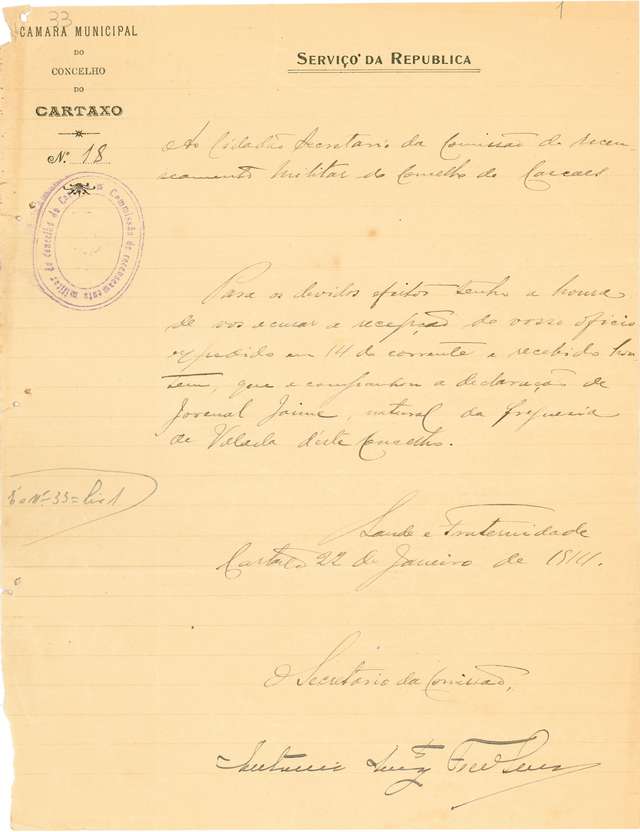 33
1
CAMARA MUNICIPAL
DO
CONCELHO
DO
CARTAXO
N.º 18
SERVIÇO DA REPUBLICA
Ao Cidadão Secretario da Comissão do recen-
seamento Militar do Concelho de Cascaes
Commissão do recenseamento militar do concelho de
Para os devidos efeitos tenho a honra
de vos acusar a recepção do vosso oficio
expedido em 14 do corrente e recebido hon-
tem, que acompanhou a declaração de
Jovenal Jaime, natural da freguesia
de Valada d'este Concelho.
É o Nº 33 = Liv 1
Saude e Fraternidade
Cartaxo 22 de Janeiro de 1914.
O Secretário da Comissão,
Antonio Luiz